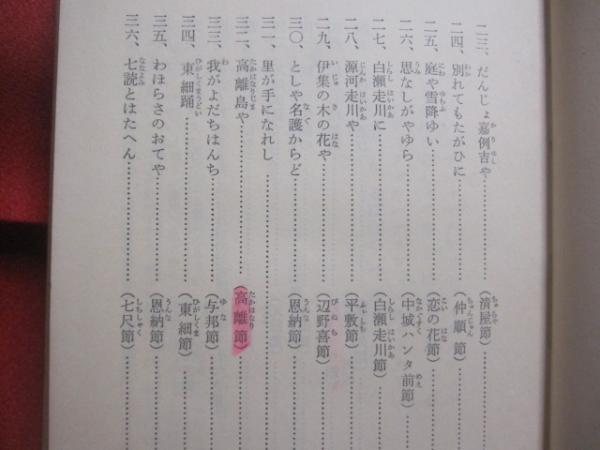 二三、だんじょ嘉例吉や……………(清屋節)
二四、別れてもたがひに……………(仲順節)
二五、庭や雪降ゆい……………(恋の花節)
二六、思なしがやゆら……………(中城ハンタ前節)
二七、白瀬走川に……………(白瀬走川節)
二八、源河走川や……………(平敷節)
二九、伊集の木の花や……………(辺野喜節)
三〇、としや名護からど……………(恩納節)
三一、里が手になれし……………
三二、高離島や……………(高離節)
三三、我がよだちはんち……………(与那節)
三四、東細踊……………(東細節)
三五、わほらさのおてや……………(恩納節)
三六、七読とはたへん……………(七尺節)